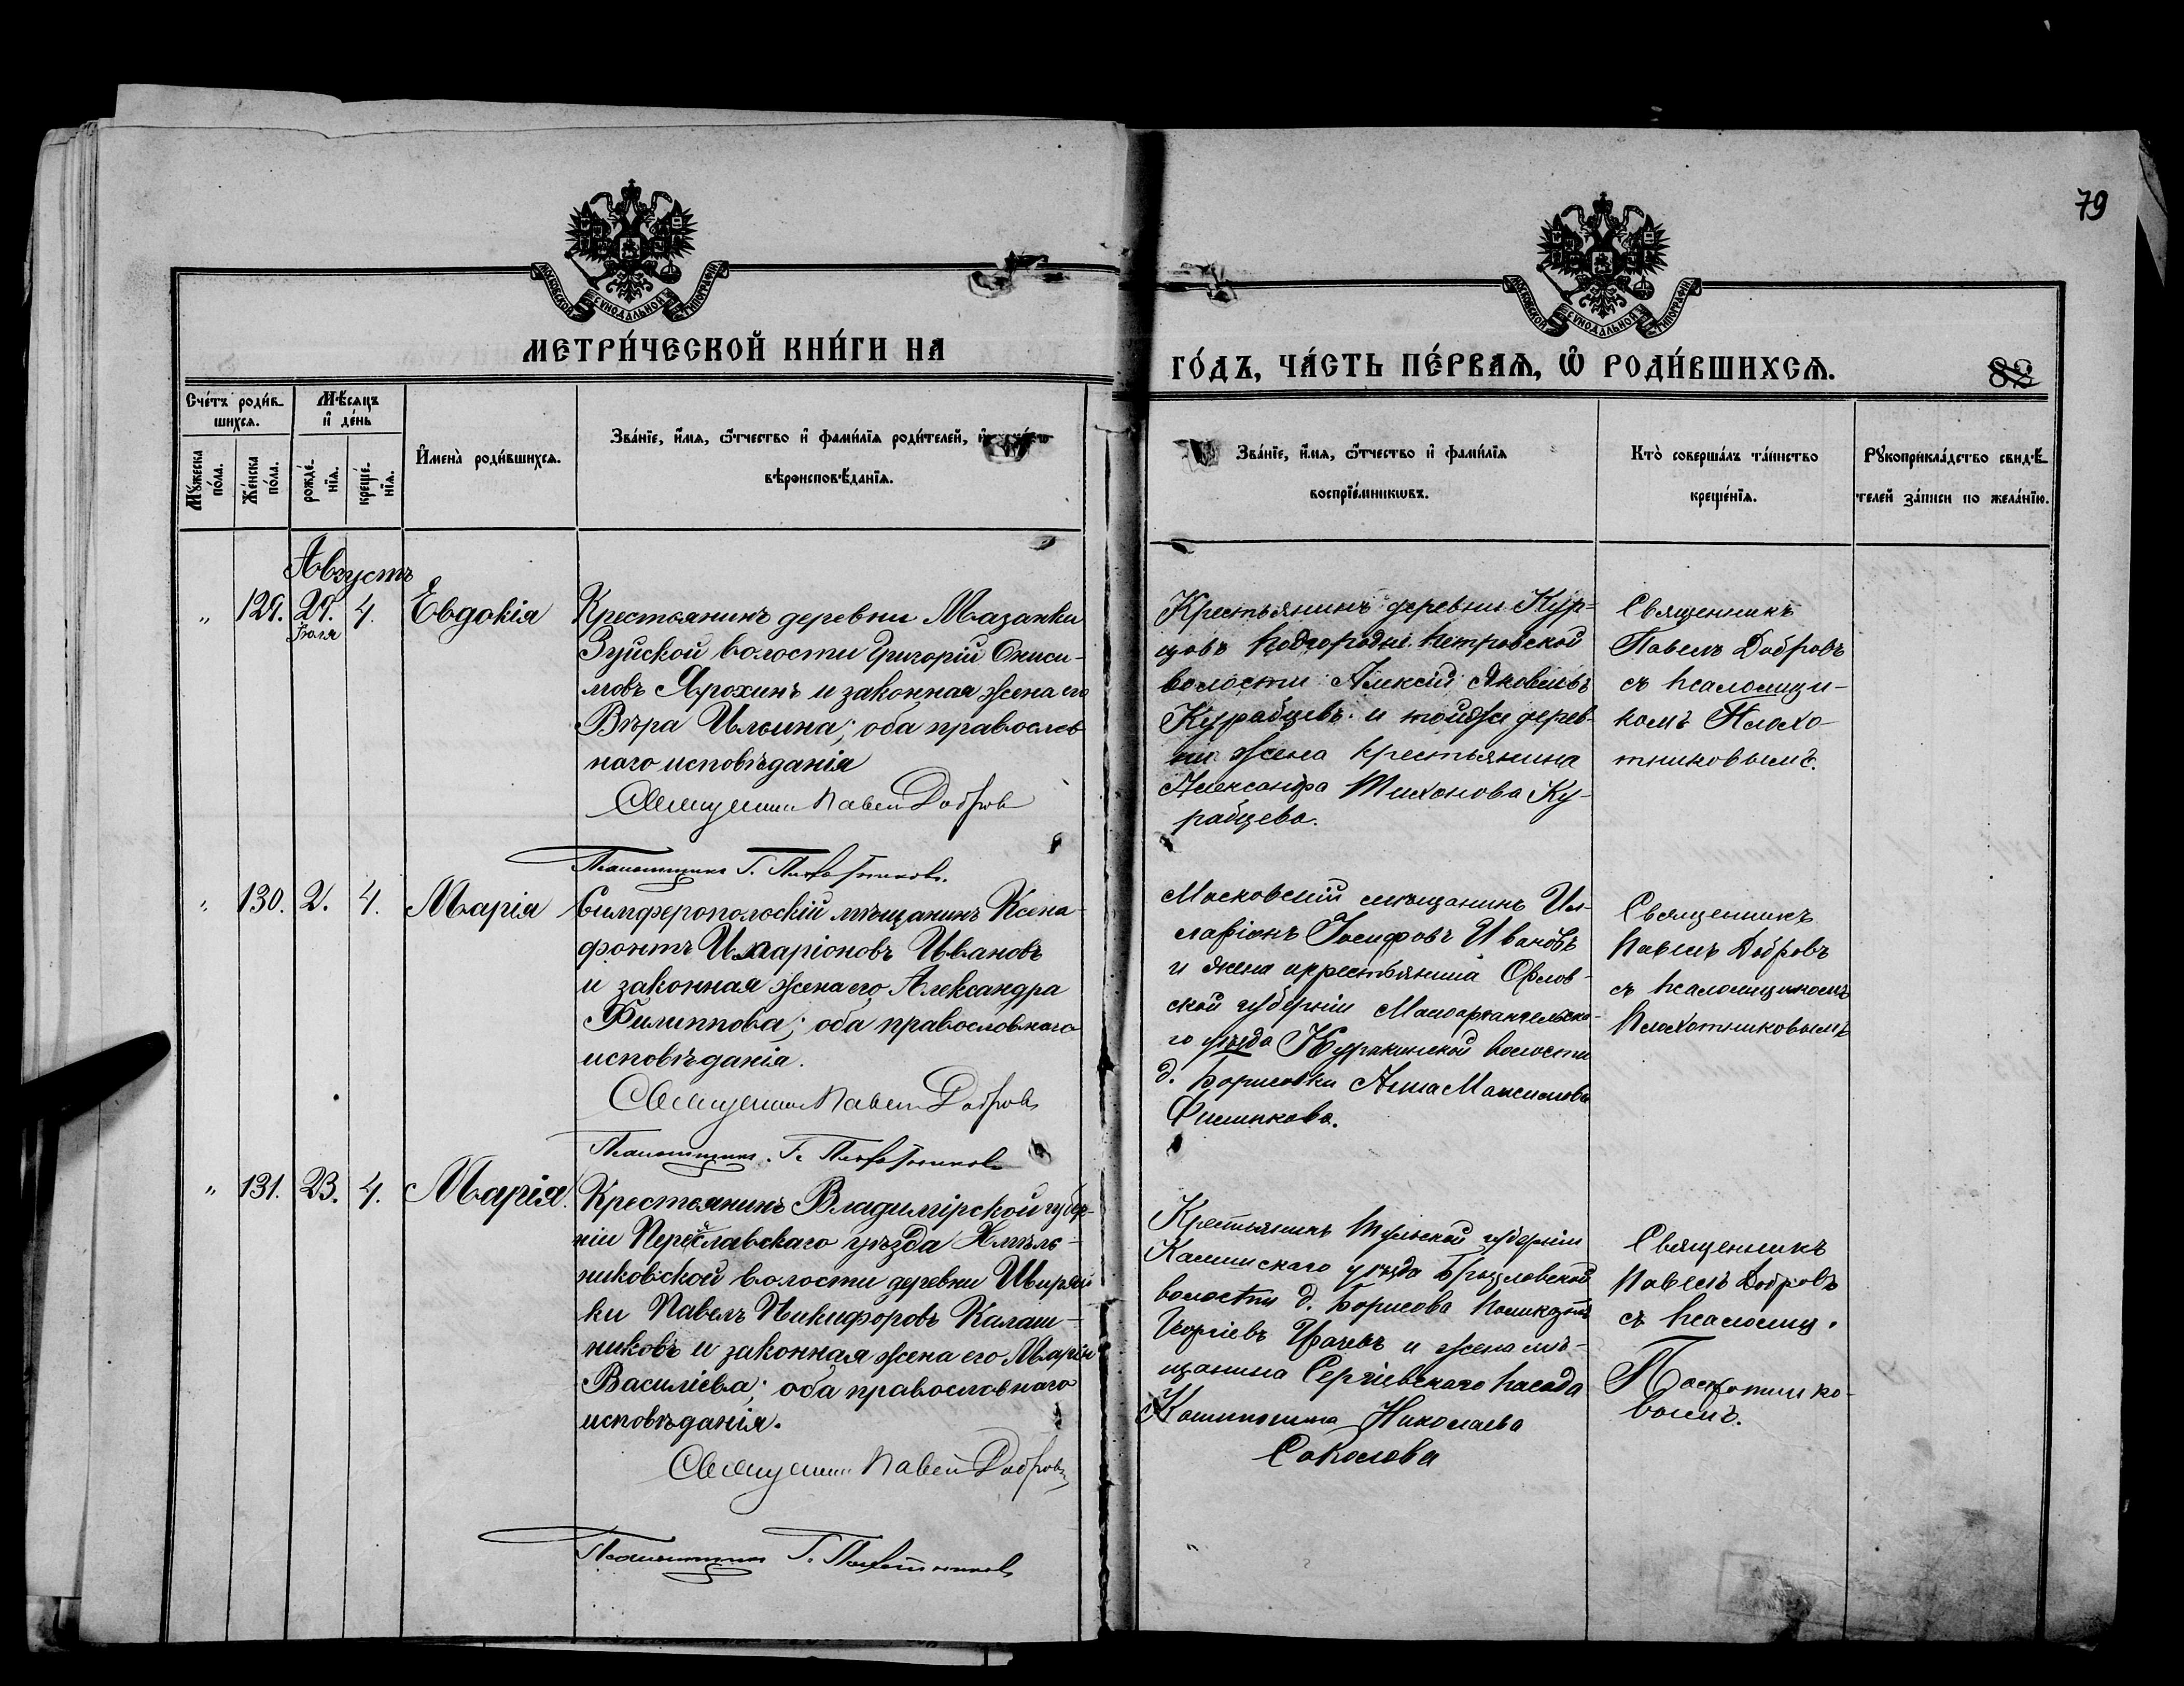 79
МОСКОВСКОЙ СѴНОДАЛЬНОЙ ТИПОГРАФІИ
МОСКОВСКОЙ СѴНОДАЛЬНОЙ ТИПОГРАФІИ
МЕТРИ́ЧЕСКОЙ КНИ́ГИ НА
ГО́ДЪ, ЧА́СТЬ ПЕ́РВАѦ, Ѿ РОДИ́ВШИХСѦ.
88
Сче́тъ роди́в-
шихсѧ.
Мѣ́сяцъ
и҆ де́нь
Му́жеска по́ла.
Же́нска по́ла.
рожде́нїѧ.
креще́нїѧ.
И҆мена̀ роди́вшихсѧ.
Зва́нїе, и҆́мѧ, ѻ҆́тчество и҆ фами́лїѧ роди́телей, и҆
вѣроисповѣ́данїѧ.
Зва́нїе, и҆́мѧ, ѻ҆́тчество и҆ фами́лїѧ
воспрїе́мникѡвъ.
Кто̀ соверша́лъ та́инство
креще́нїѧ.
Рꙋкоприкла́дство свидѣ́-
телей за́писи по жела́нїю.
Августъ
" 129. 29. 4. Евдокія
Іюля
Крестьянинъ деревни Мазанки
Зуйской волости Григорій Аниси-
мовъ Ярохинъ и законная жена его
Вѣра Ильина; оба православ
наго исповѣданія
Священникъ Павелъ Добровъ
Псаломщикъ Г. Плохотниковъ.
Крестьянинъ деревни Кур-
цовъ Подгородне Петровской
волости Алексій Яковлевъ
Курабцевъ и тойже дерев-
ни жена крестьянина
Александра Тихонова Ку-
рабцева.
Священникъ
Павелъ Добровъ
съ псаломщи-
комъ Плохо-
тниковымъ.
" 130. 2. 4. Марія
Симферопольскій мѣщанинъ Ксено-
фонтъ Иларіоновъ Ивановъ
и законная жена его Александра
Филиппова; оба православнаго
исповѣданія.
Священникъ Павелъ Добровъ
Псаломщикъ Г. Плохотниковъ
Московскій мѣщанинъ Ил-
ларіонъ Іосифовъ Ивановъ
и жена крестьянина Орлов-
ской губерніи Малоархангельска-
го уѣзда Куракинской волости
д. Борисовки Анна Максимова
Священникъ
Павелъ Добровъ
съ псаломщикомъ
Плохотниковымъ
" 131. 23. 4. Марія.
Крестьянинъ Владимірской губер-
ніи Переславскаго уѣзда Хмѣль-
никовской волости деревни
ки Павелъ Никифоровъ Калаш-
никовъ и законная жена его Марія
Василіева; оба православнаго
исповѣданія.
Священникъ Павелъ Добровъ
Псаломщикъ Г. Плохотниковъ
Крестьянинъ Тульской губерніи
уѣзда
волости д. Борисова
Георгіевъ и жена мѣ-
щанина Сергіевскаго посада
Николаева
Соколова
Священникъ
Павелъ Добровъ
съ псаломщ.
Плохотнико-
вымъ.